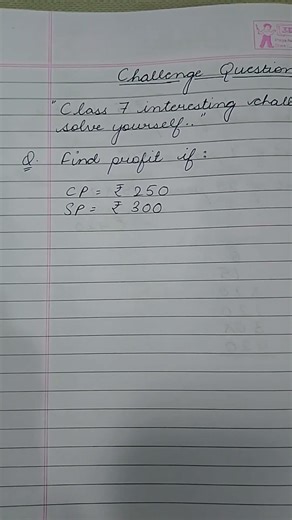 Challenge Question
"Class 7 interesting
solve yourself.."
Q. Find profit if :
CP = ₹ 250
SP = ₹ 300